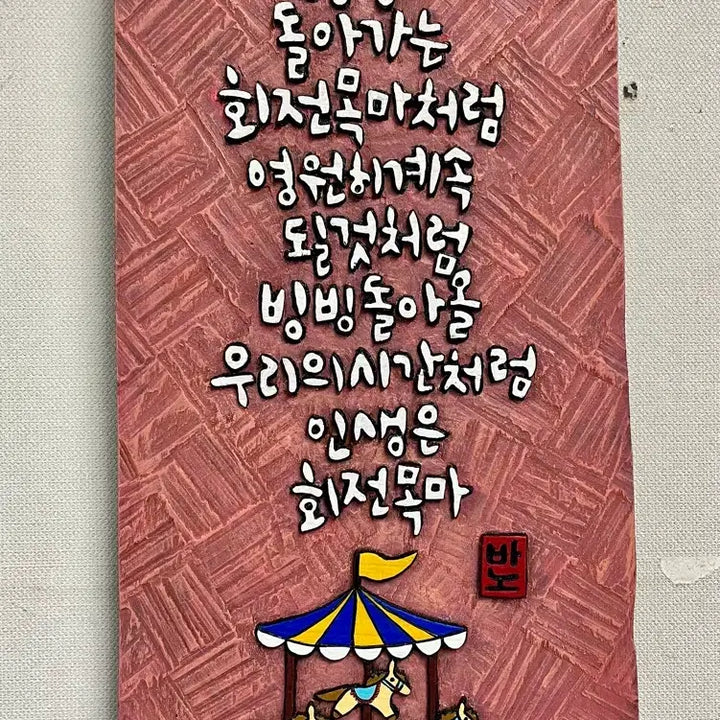 돌아가는
회전목마처럼
영원히계속
될것처럼
빙빙돌아올
우리의시간처럼
인생은
회전목마
바노